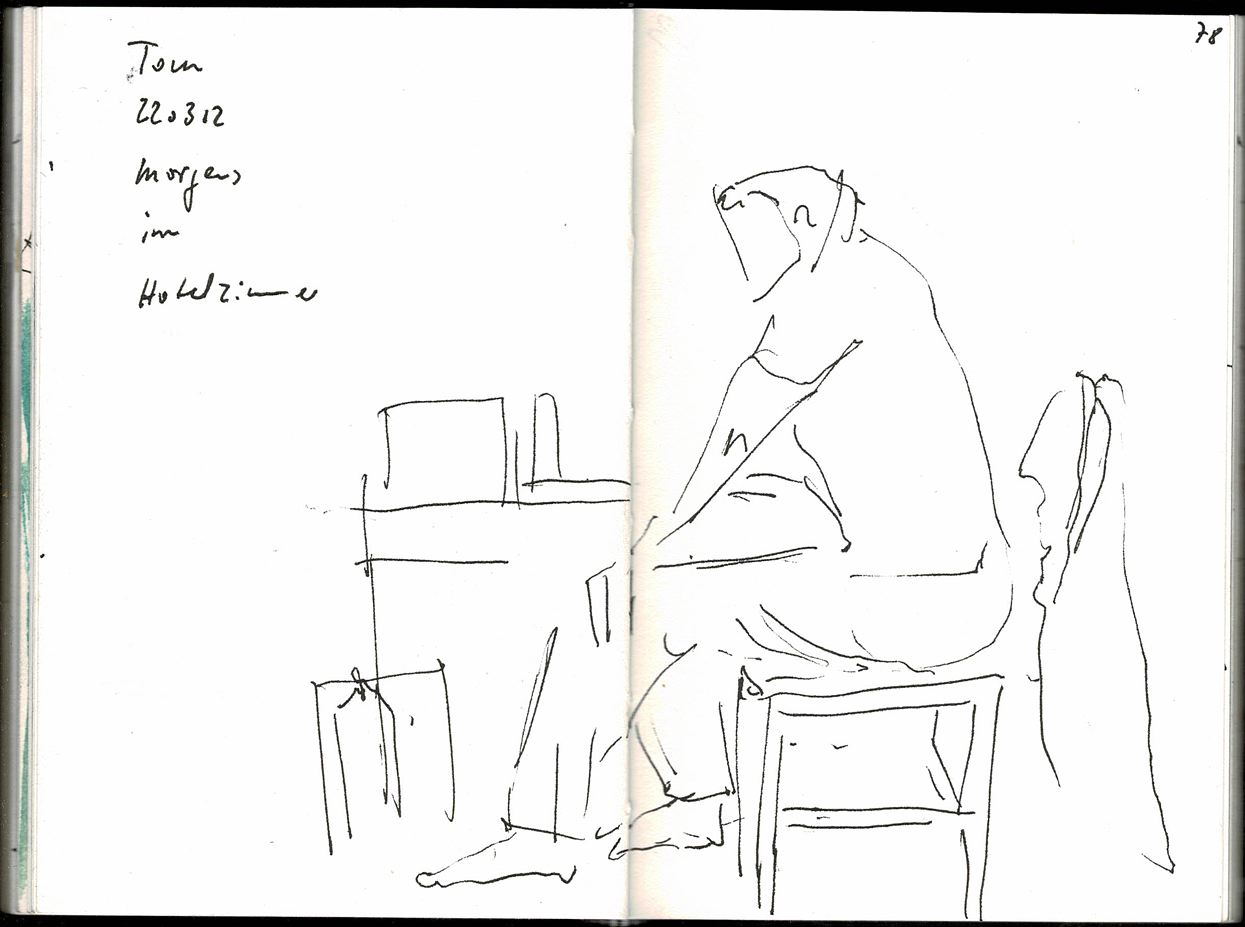 Tom
22.3 12
morgens
im
Hotelzimmer
78